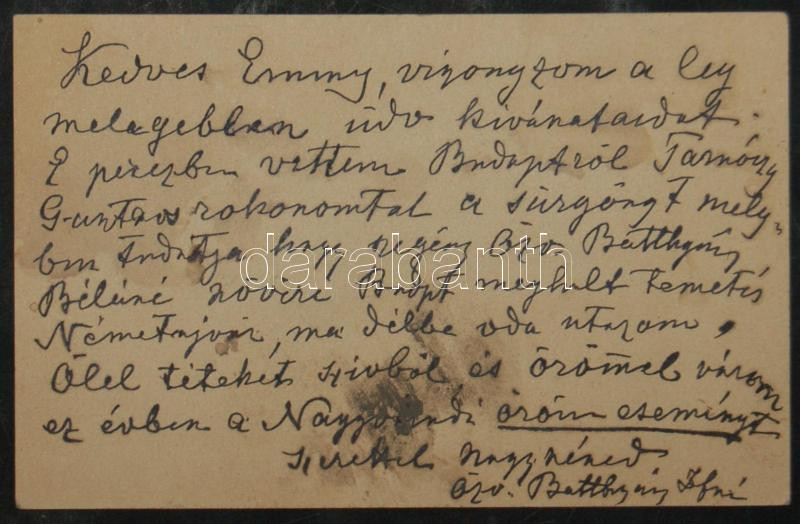 Kedves Emmy, vizonyzom a leg
melegebben üdv kivánataidat.
E perczben vettem Budaptról Tarnóczy
Gusztáv rokonomtól a sürgönyt mely-
ben tudatja hogy szegény Özv. Batthyány
Béláné nővére Budpt meghalt temetés
Németujvár, ma délbe oda utazom,
Ölel titeket szivből és örömmel várom
ez évben a Nagyváradi öröm eseményt
szeretettel nagynéned
özv. Batthyány
darabanth